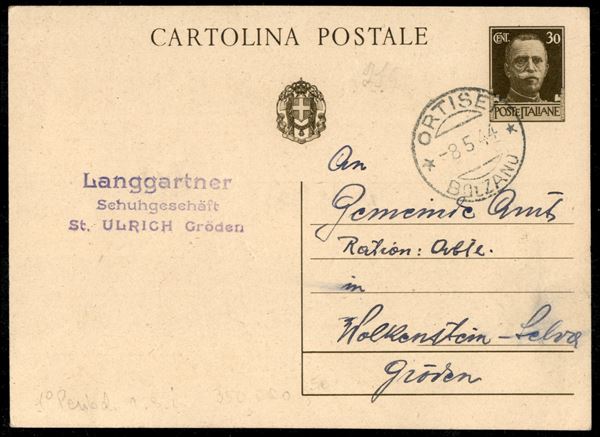 CARTOLINA POSTALE
CENT. 30
POSTE ITALIANE
ORTISEI
-8.5.44
BOLZANO
Langgartner
Schuhgeschäft
St. ULRICH Gröden
An
Gemeinde Amt
Ration: Abte.
in
Wolkenstein-Selva
Gröden
1° Period. r.s.i. 350.000 50